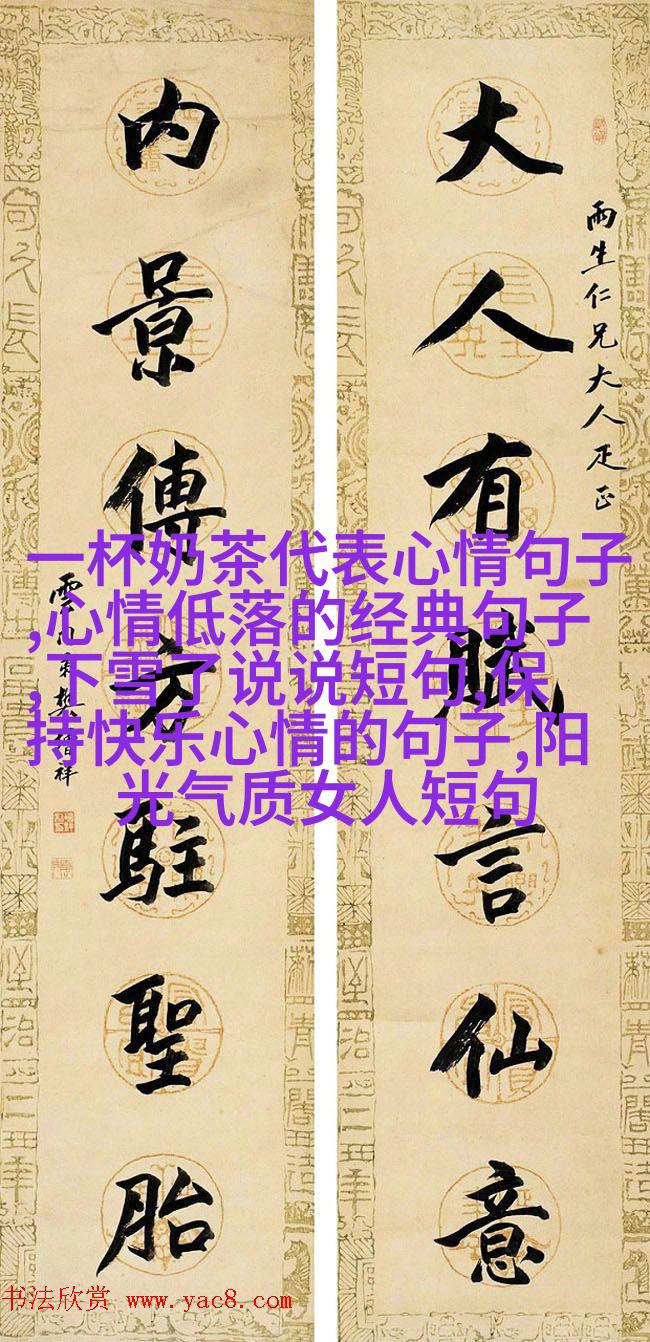 大人有賦言仙意
雨生仁兄大人疋正
內景傳方駐聖胎
雲門樊增祥
一杯奶茶代表心情句子
,心情低落的经典句子
,下雪了说说短句,保
持快乐心情的句子,阳
光气质女人短句
书法欣赏 www.yac8.com